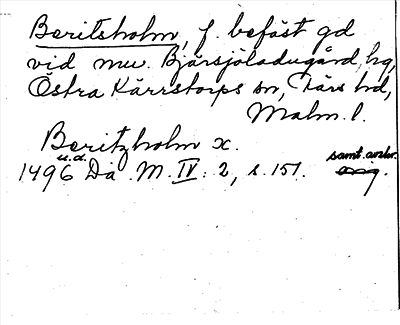 Beritsholm, f. befäst gd
vid nuv. Bjärsjöladugård, hg,
Östra Kärrstorps sn, Färs hd,
Malm. l.
Beritzholm x.
u.d. samt. avskr.
1496 Da. M. IV: 2, s. 151. orig.